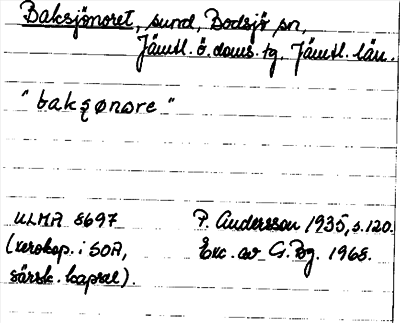 Baksjönoret, sund, Bodsjö sn,
Jämtl. ö. doms. tg. Jämtl. län.
"bakȿønɷre"
ULMA 8697 P. Andersson 1935, s. 120.
(xerokop. i SOA, Exc. av G. Bg. 1968.
särsk. kapsel).